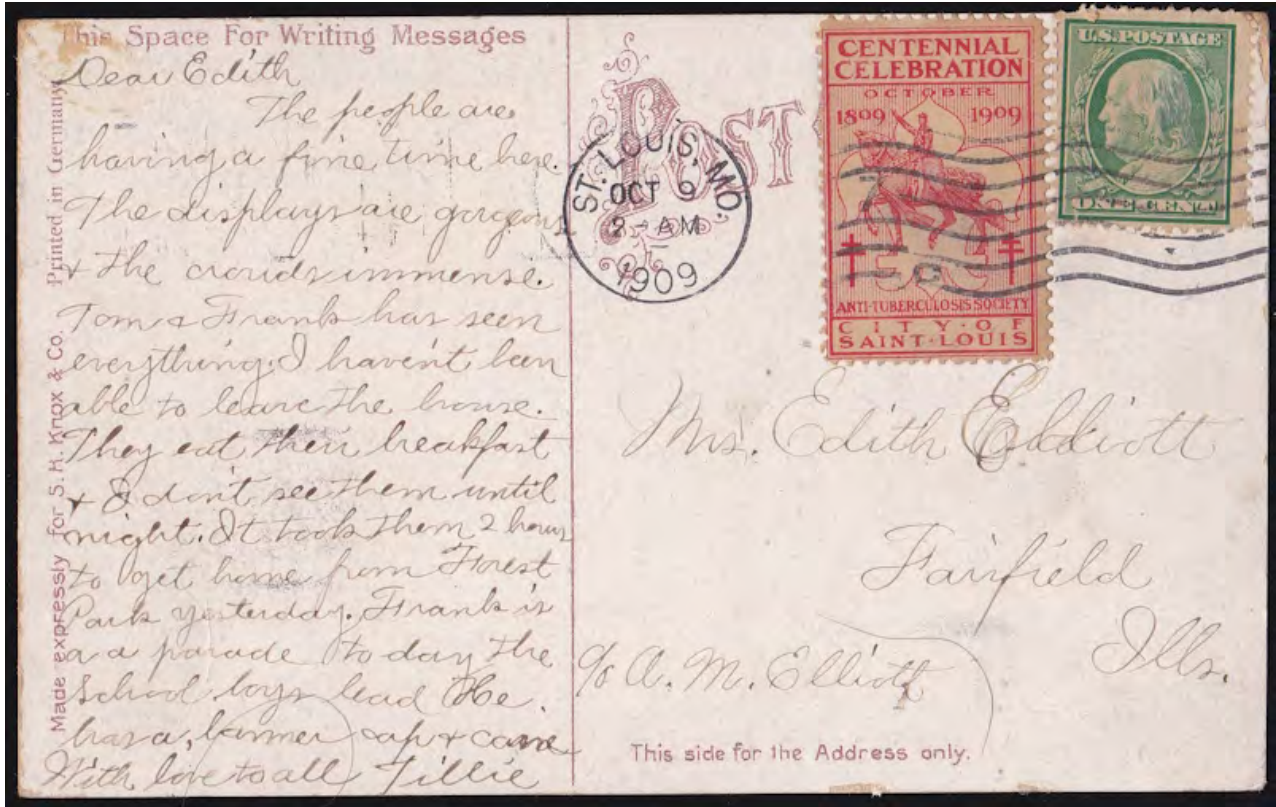 This Space For Writing Messages
Dear Edith
The people are
having a fine time here.
The displays are gorgeous
& the crouds immense.
Tom & Frank has seen
everything. I haven't been
able to leave the house.
They eat their breakfast
& I don't see them until
night. It took them 2 hours
to get home from Forest
Park yesterday. Frank is
a parade to day the
School boys lead He
has a, banner cap & cane
With love to all Tillie
Printed in Germany
Made expressly for S.H. Knox & Co.
POST
ST. LOUIS, MO.
OCT 9
2 - AM
1909
CENTENNIAL
CELEBRATION
OCTOBER
1809 1909
ANTI-TUBERCULOSIS SOCIETY
CITY·OF
SAINT·LOUIS
U.S. POSTAGE
ONE CENT
Mrs. Edith Elliott
Fairfield
Ills.
c/o A. M. Elliott
This side for the Address only.